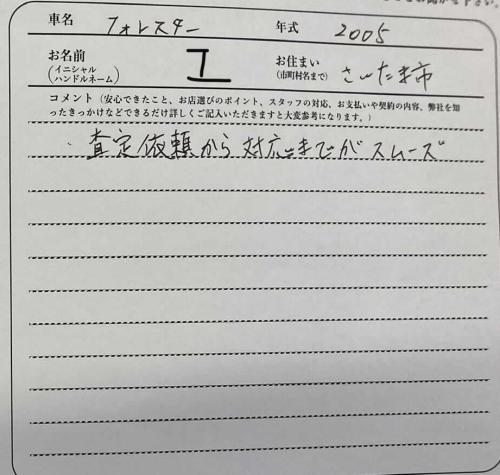 車名 フォレスター 年式 2005
お名前 I お住まい さいたま市
(イニシャル (市町村名まで)
ハンドルネーム)
コメント(安心できたこと、お店選びのポイント、スタッフの対応、お支払いや契約の内容、弊社を知
ったきっかけなどできるだけ詳しくご記入いただきますと大変参考になります。)
・査定依頼から対応までがスムーズ